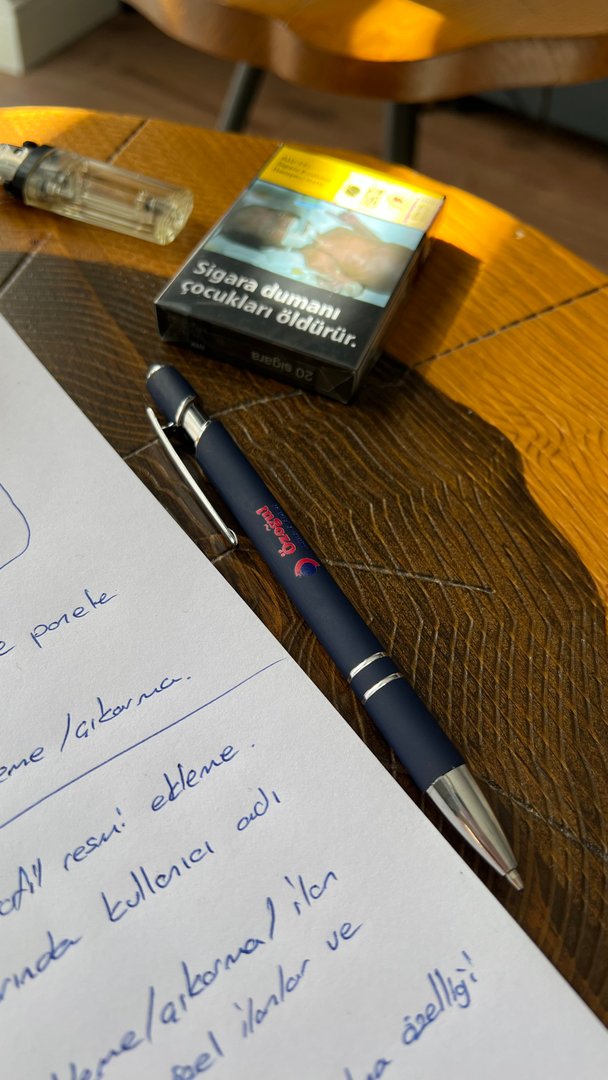 Sigara dumanı
çocukları öldürür.
20 sigara
Özoğul
e porete
eme/çıkarma.
ofil resmi ekleme.
arında kullanıcı adı
kleme/çıkarma/ilan
sel ilanlar ve
özelliği